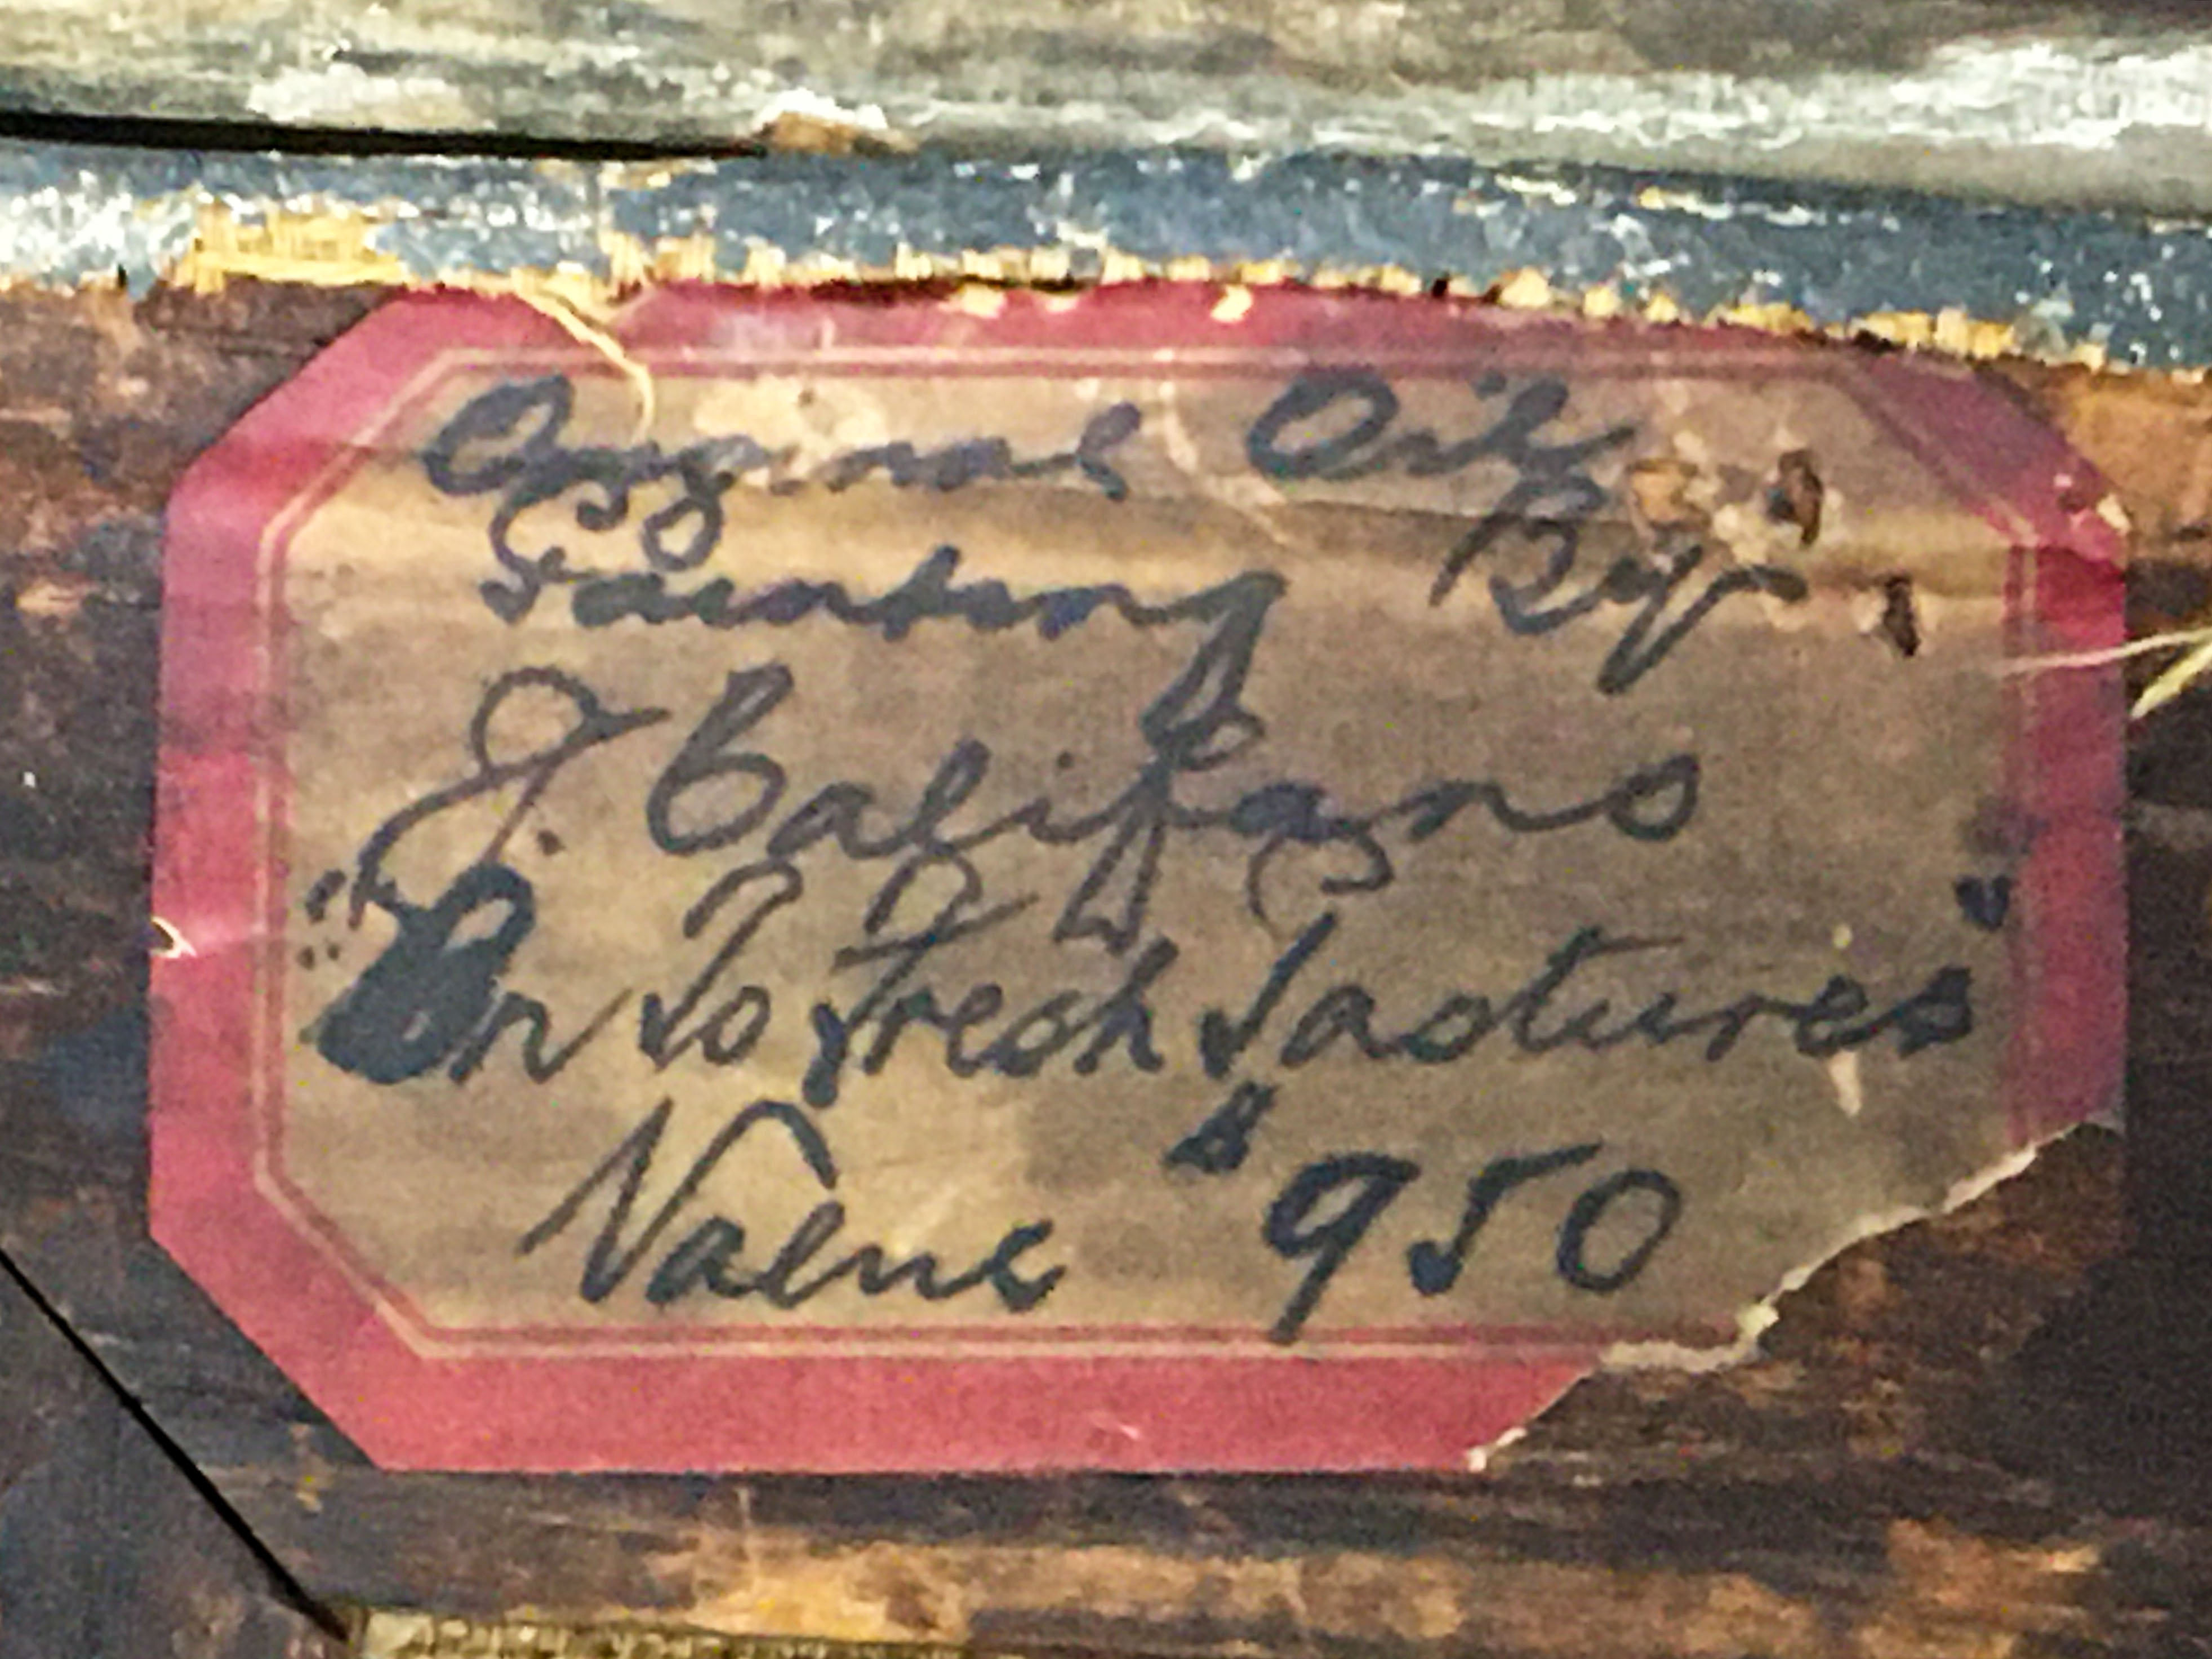 Original Oil
Painting By
J. Califano
"On To Fresh Pastures"
Value $950